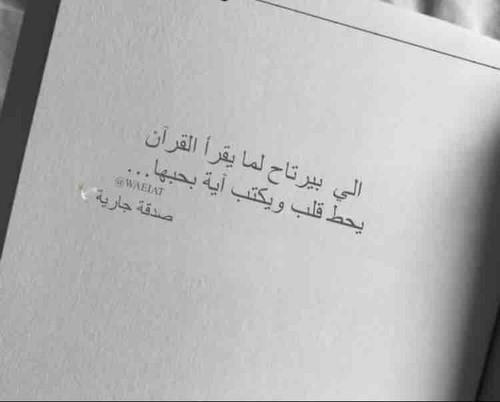 الي بيرتاح لما يقرأ القرآن
يحط قلب ويكتب آية بحبها...
@WAEIAT
صدقة جارية